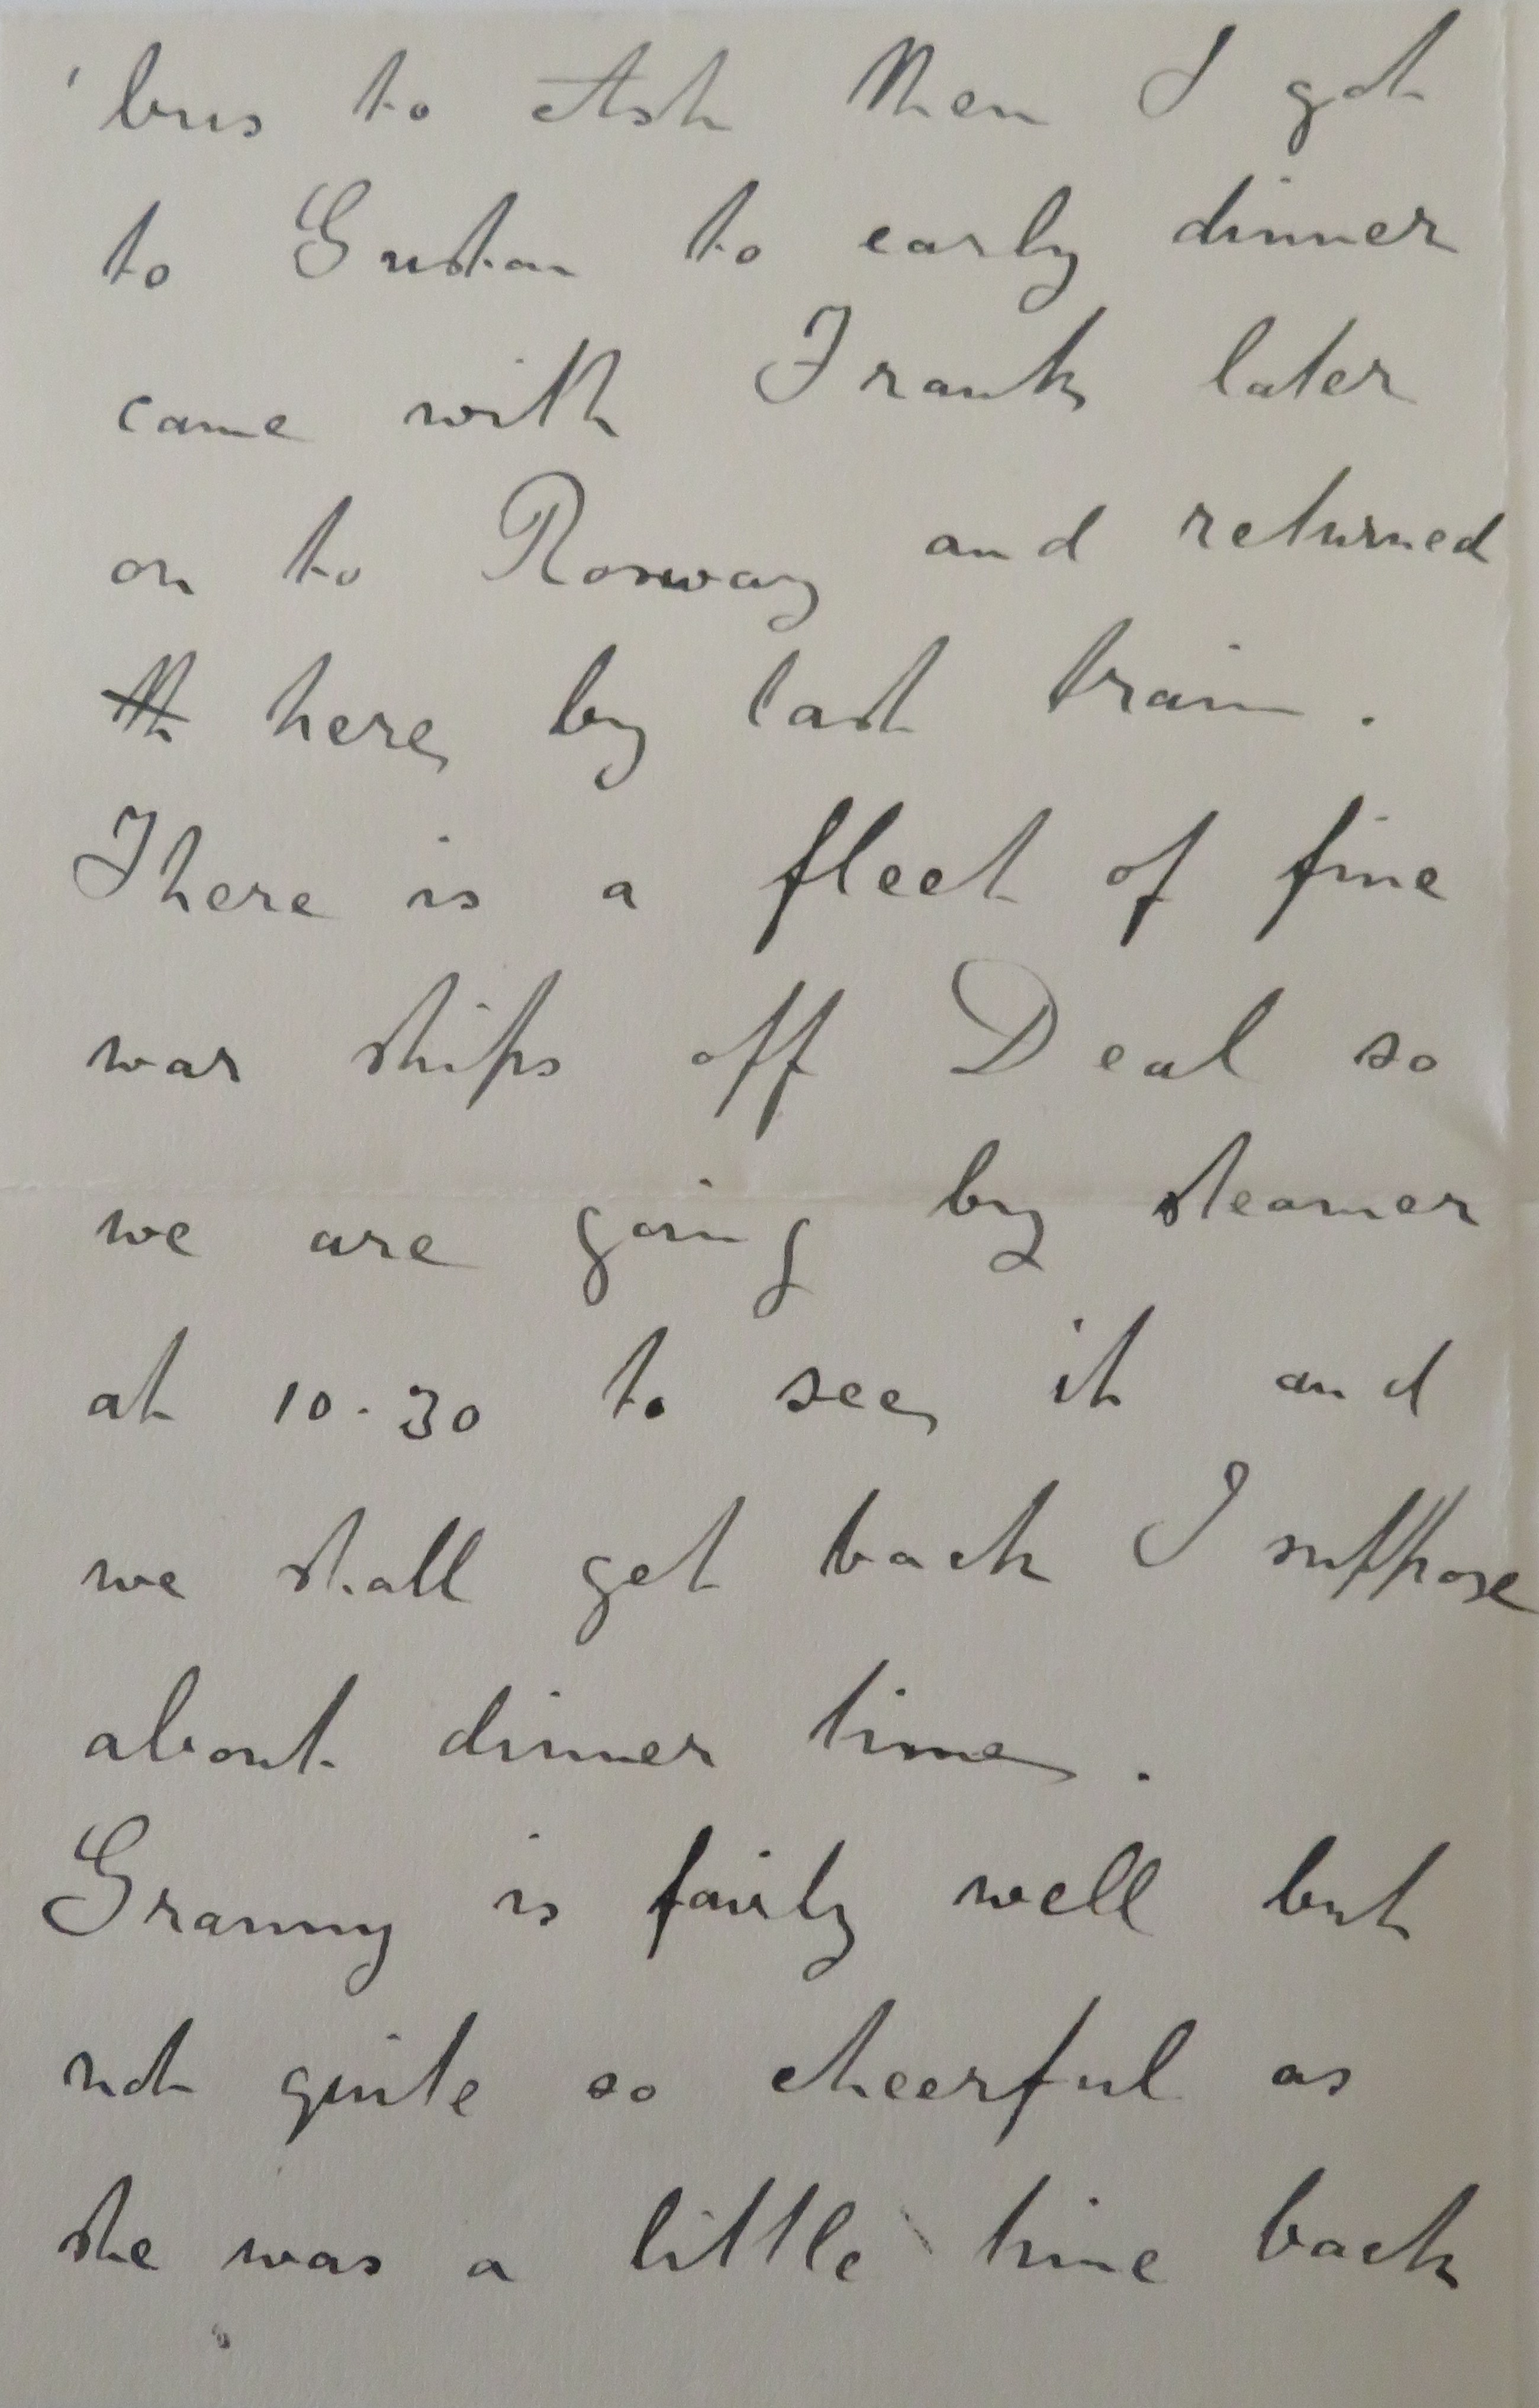 'bus to Ash then I got
to Guston to early dinner
came with Frank later
on to Rosway and returned
th here by last train.
There is a fleet of fine
war ships off Deal so
we are going by steamer
at 10.30 to see it and
we shall get back I suppose
about dinner time.
Granny is fairly well but
not quite so cheerful as
she was a little time back